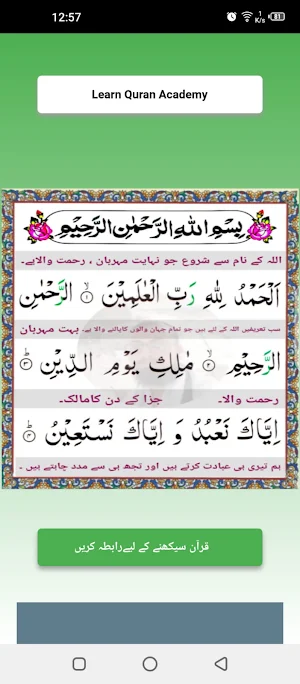 12:57
1
K/s
81
Learn Quran Academy
بِسْمِ اللّٰهِ الرَّحْمٰنِ الرَّحِيْمِ
اللہ کے نام سے شروع جو نہایت مہربان ، رحمت والاہے۔
اَلْحَمْدُ لِلّٰهِ رَبِّ الْعٰلَمِيْنَ ۙ﴿۱﴾ الرَّحْمٰنِ
سب تعریفیں اللہ کے لئے ہیں جو تمام جہان والوں کاپالنے والا ہے۔ بہت مہربان
الرَّحِيْمِ ۙ﴿۲﴾ مٰلِكِ يَوْمِ الدِّيْنِ ؕ﴿۳﴾
رحمت والا۔ جزا کے دن کامالک۔
اِيَّاكَ نَعْبُدُ وَ اِيَّاكَ نَسْتَعِيْنُ ؕ﴿۴﴾
ہم تیری ہی عبادت کرتے ہیں اور تجھ ہی سے مدد چاہتے ہیں ۔
قرآن سیکھنے کے لیےرابطہ کریں